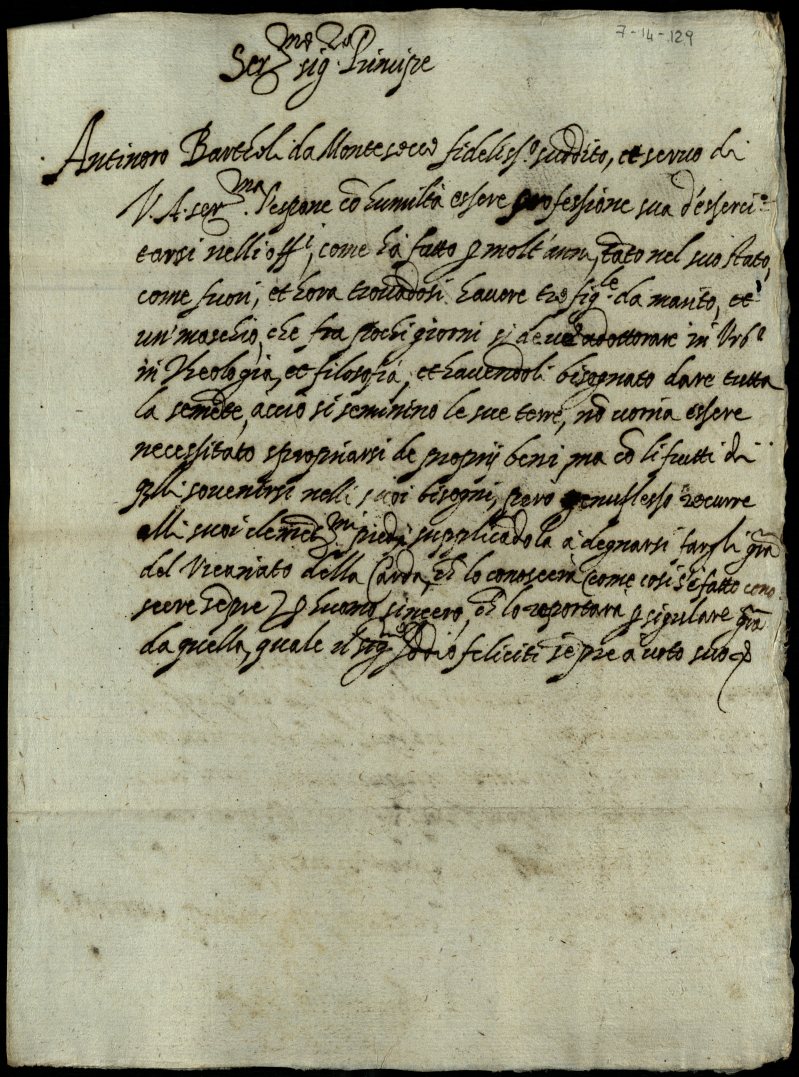 7-14-129
Ser.mo sig.re Principe
Antinoro Barthol da Montesecco fideliss.o suddito, et servo di
V. A. ser.ma l'espone cō humiltà essere professione sua d'esserci-
tarsi nelli offi, come hà fatto p molt'anni, tāto nel suo stato,
come fuori, et hora trovādosi havere tre fig.le da marito, et
un' maschio, che fra pochi giorni si deve adottorare in Urb.o
in Theologia, et filosofia, et havendoli bisognato dare tutta
la semēte, acciò si seminino le sue terre, nō vorria essere
necessitato spropriarsi de proprij beni ma cō li frutti di
q̄lli sovenirsi nelli suoi bisogni, però genuflesso recurre
alli suoi clemēt.mi piedi supplicādola à degnarsi fargli grā
del Vicariato della Carda, ch lo conoscerà come cosi s'è fatto cono
scere sēpre p huomo sincero, ch lo reportarà p sigulare grā
da quella, quale il sig.re Iddio feliciti sēpre à voto suo